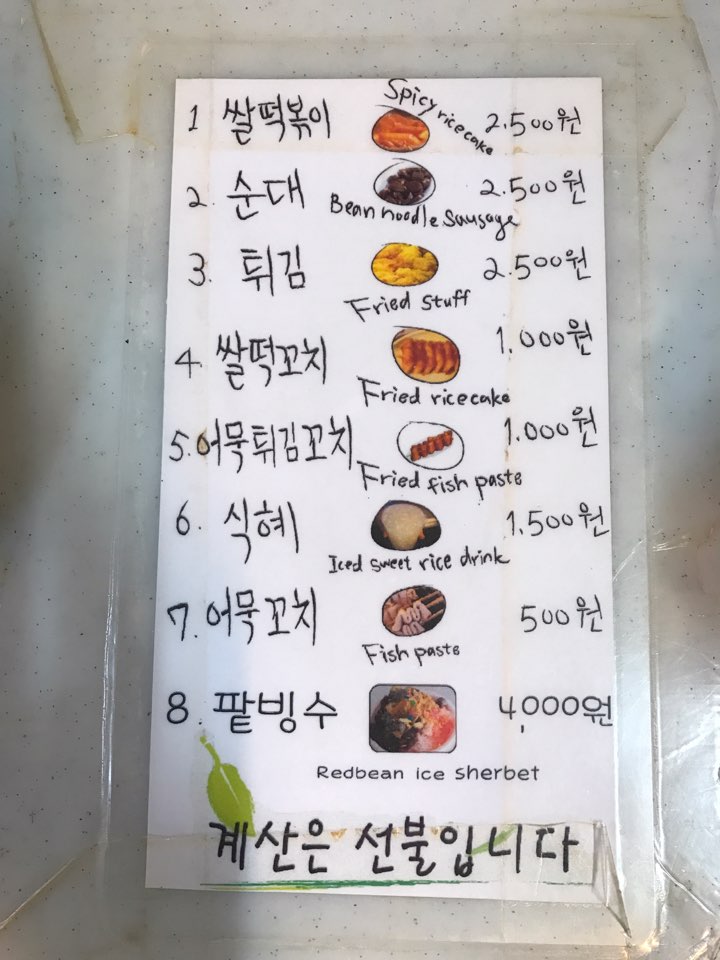 1 쌀떡볶이 Spicy rice cake 2.500원
2. 순대 2.500원
Bean noodle Sausage
3. 튀김 2.500원
Fried Stuff
4. 쌀떡꼬치 1.000원
Fried rice cake
5. 어묵튀김꼬치 1.000원
Fried fish paste
6. 식혜 1.500원
Iced sweet rice drink
7. 어묵꼬치 500원
Fish paste
8. 팥빙수 4,000원
Redbean ice sherbet
계산은 선불입니다